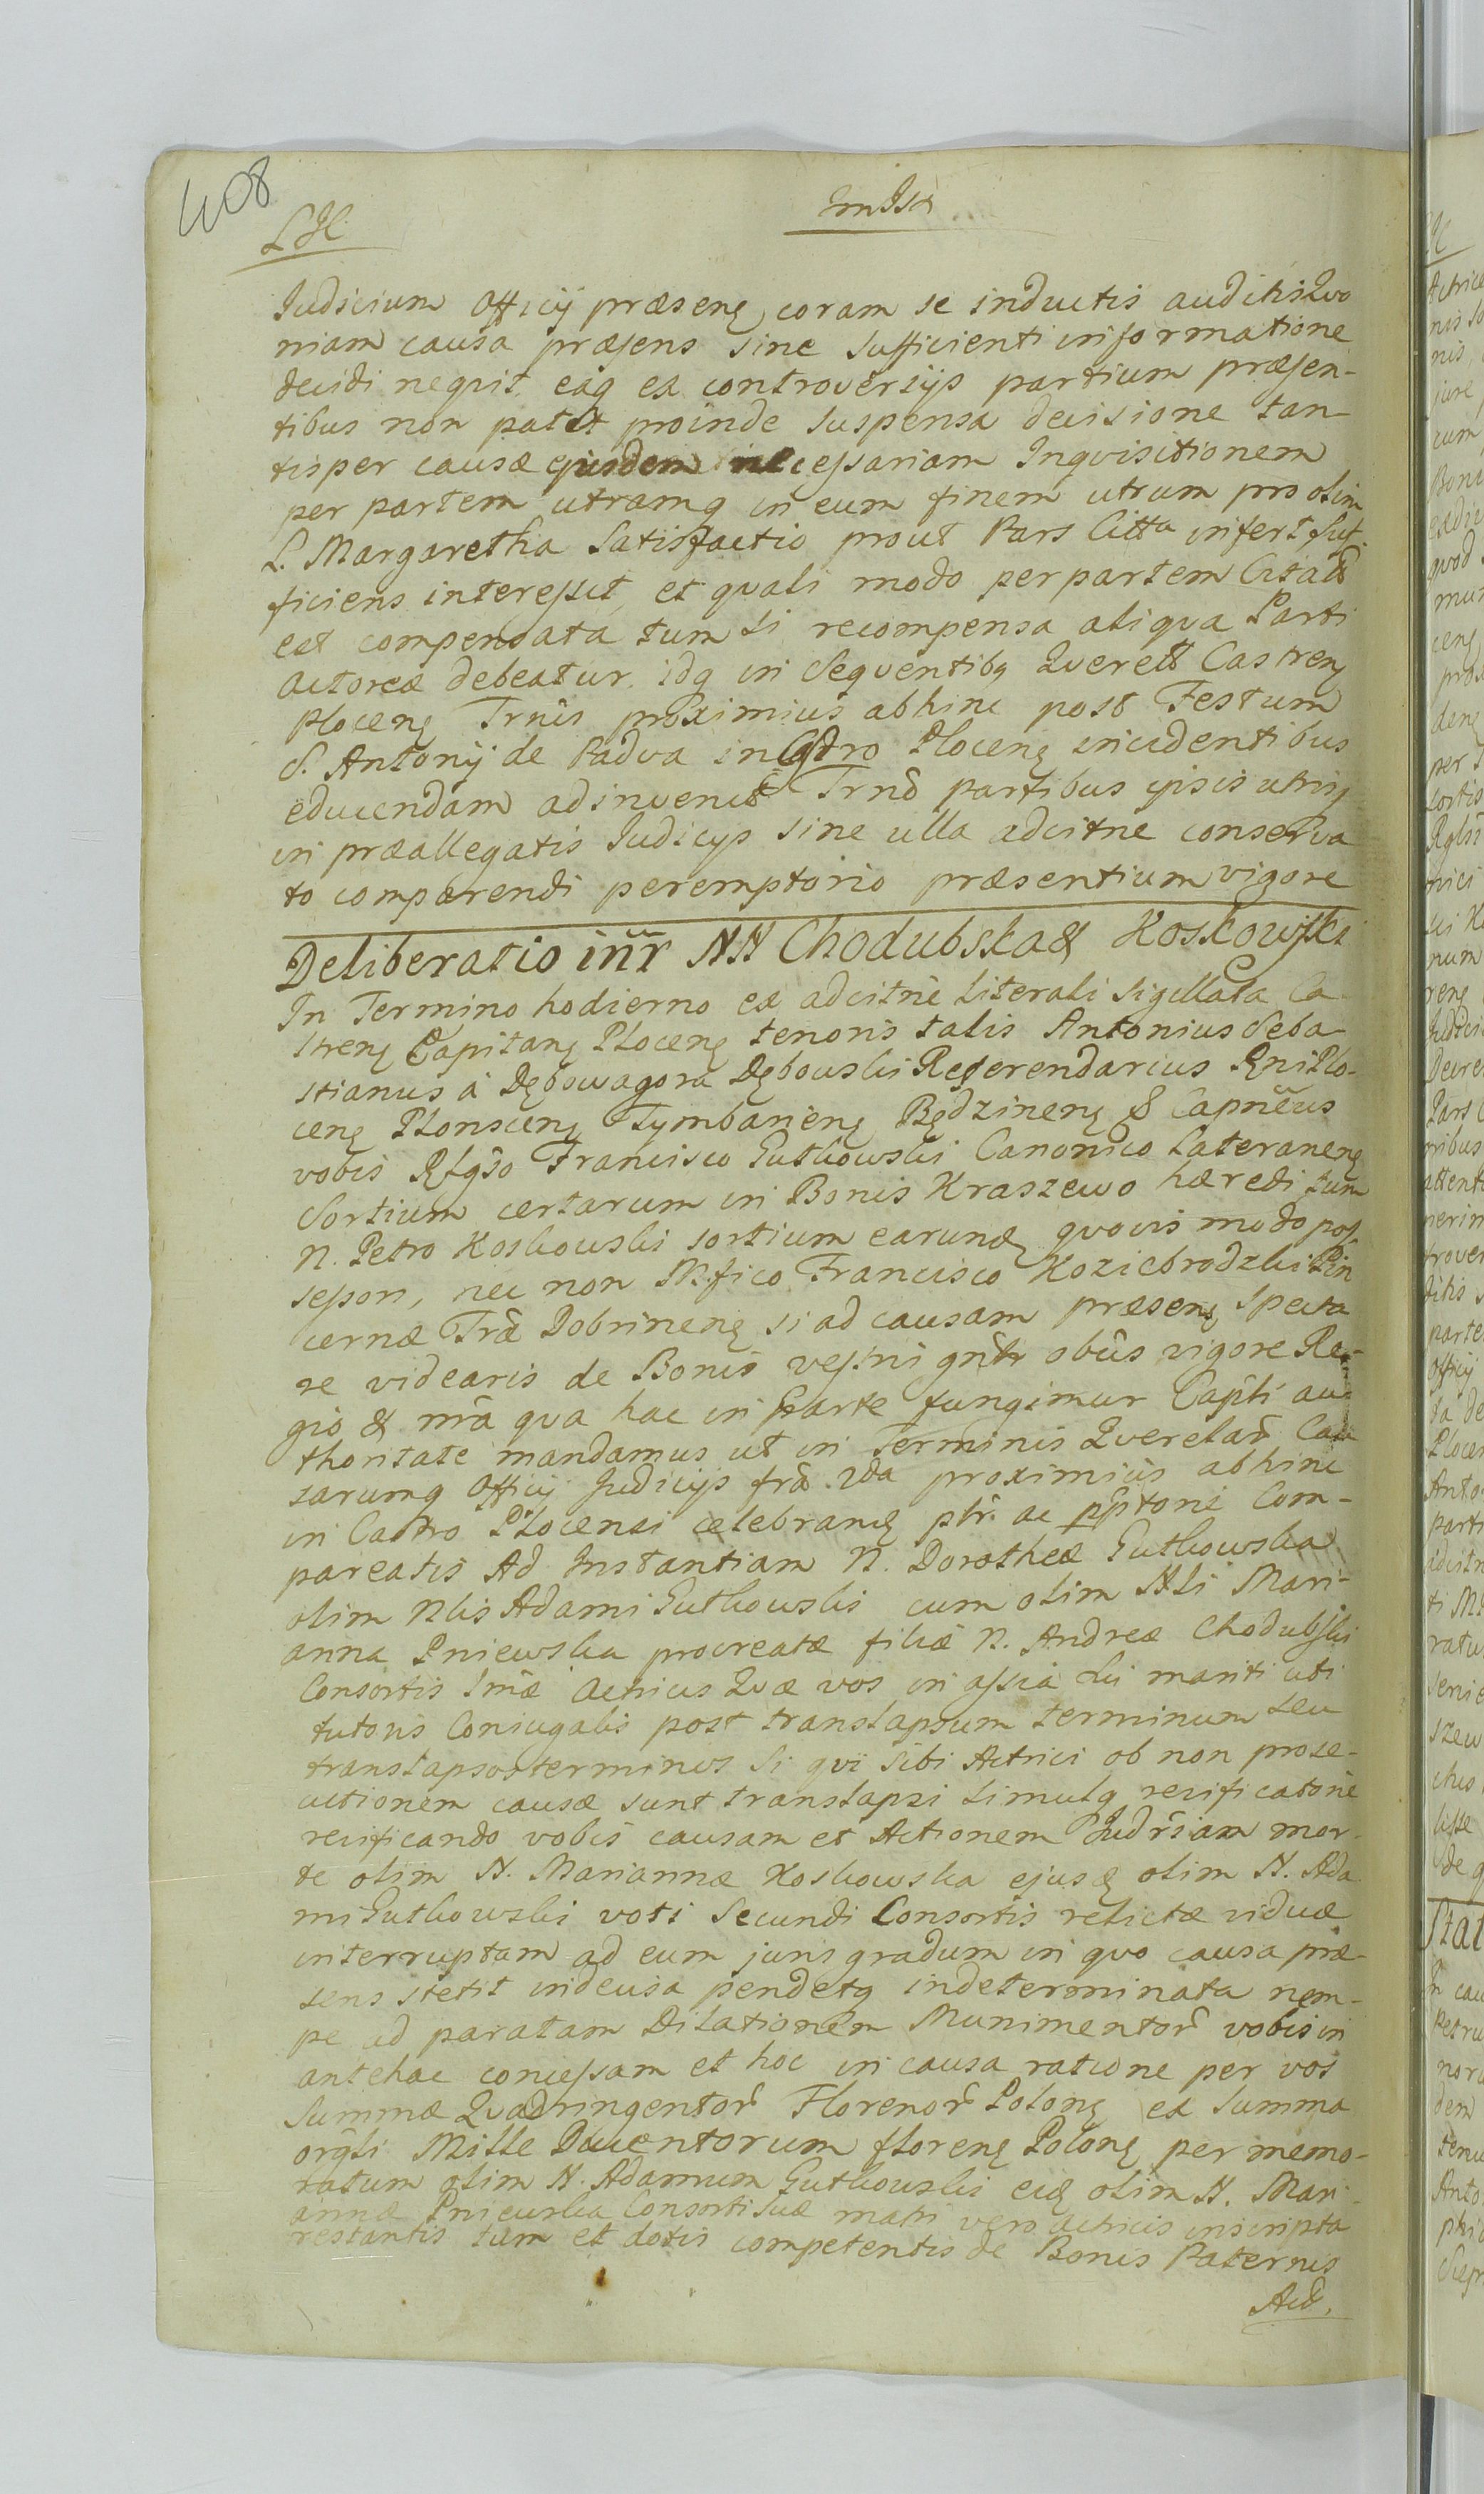 408
LH
Judicium Officij præsenę coram se inductis auditis Quo
niam causa præsens sine sufficienti informatione
decidi nequit eaq ex controversijs partium præsen-
tibus non patet proinde suspensa decisione tan
tisper causæ ejusdem necessariam Inquisitionem
per partem utramq in eum finem utrum pro olim
L. Margaretha Satisfactio prout Pars Citta infert suf-
ficiens interessit et quali modo per partem Citatā
est compensata tum si recompensa aliqua Parti
Actoreæ debeatur idq in sequentibq Querell Castrenę
Plocenę Trnis proximius abhinc post Festum
S. Antonij de Padua in Castro Plocenę incidentibus
educendam adinvenit Trnō partibus ipsis utrisq
in præallegatis Judicijs sine ulla adcitne conserva
to comparendi peremptorio præsentium vigore
Deliberatio inr NN Chodubska & Koskowski
In Termino hodierno ex adcitne literali sigillata Ca
strenę Capitanę Plocenę tenoris talis Antonius Seba
stianus á Dębowagora Dębowski Referendarius Rni Plo-
cenę Plonscenę Tymbarienę Będzinenę & Capneus
vobis Rlgso Francisco Gutkowski Canonico Lateranenę
Sortium certarum in Bonis Kraszewo hæredi tum
N. Petro Koskowski sortium earundę quovis modo pos
sessori, nec non Mfico Francisco Koziebrodzki Pin
cernæ Træ Dobrinenę si ad causam præsenę specta
re videaris de Bonis vestris gnlr obus vigore Re-
gio & nra qua hac in parte fungimur Capti au-
thoritate mandamus ut in Terminis Querelar Cau
sarumq Officij Judicijs fra 2da proximius abhinc
in Castro Plocensi celebrandę plr ac pptorie Com-
pareatis Ad Instantiam N. Dorotheæ Gutkowska
olim Nlis Adami Gutkowski cum olim Nli Mari-
anna Pniewska procreatæ filiæ N. Andreæ Chodubski
Consortis Smæ Actricis Quæ vos in assia sui mariti uti
tutoris Coniugalis post translapsum terminum seu
translapsos terminos si qui sibi Actrici ob non prose-
cutionem causæ sunt translapsi simulq reificatone
reificando vobis causam et Actionem Judriam mor-
te olim N. Mariannæ Koskowska ejusę olim N. Ada
mi Gutkowski voti Secundi Consortis relictæ viduæ
interruptam ad eum juris gradum in quo causa præ-
sens stetit indecisa pendetq indeterminata nem-
pe ad paratam Dilationem Munimentor vobis in
antehac concessam et hoc in causa ratione per vos
Summæ Quadringentor Florenor Polonę ex Summa
orgli Mille Ducentorum florenę Polonę per memo-
ratum olim N. Adamum Gutkowski eidę olim N. Mari-
annæ Pniewska Consorti suæ matri vero actricis inscripta
restantis tum et dotis competentis de Bonis Paternis